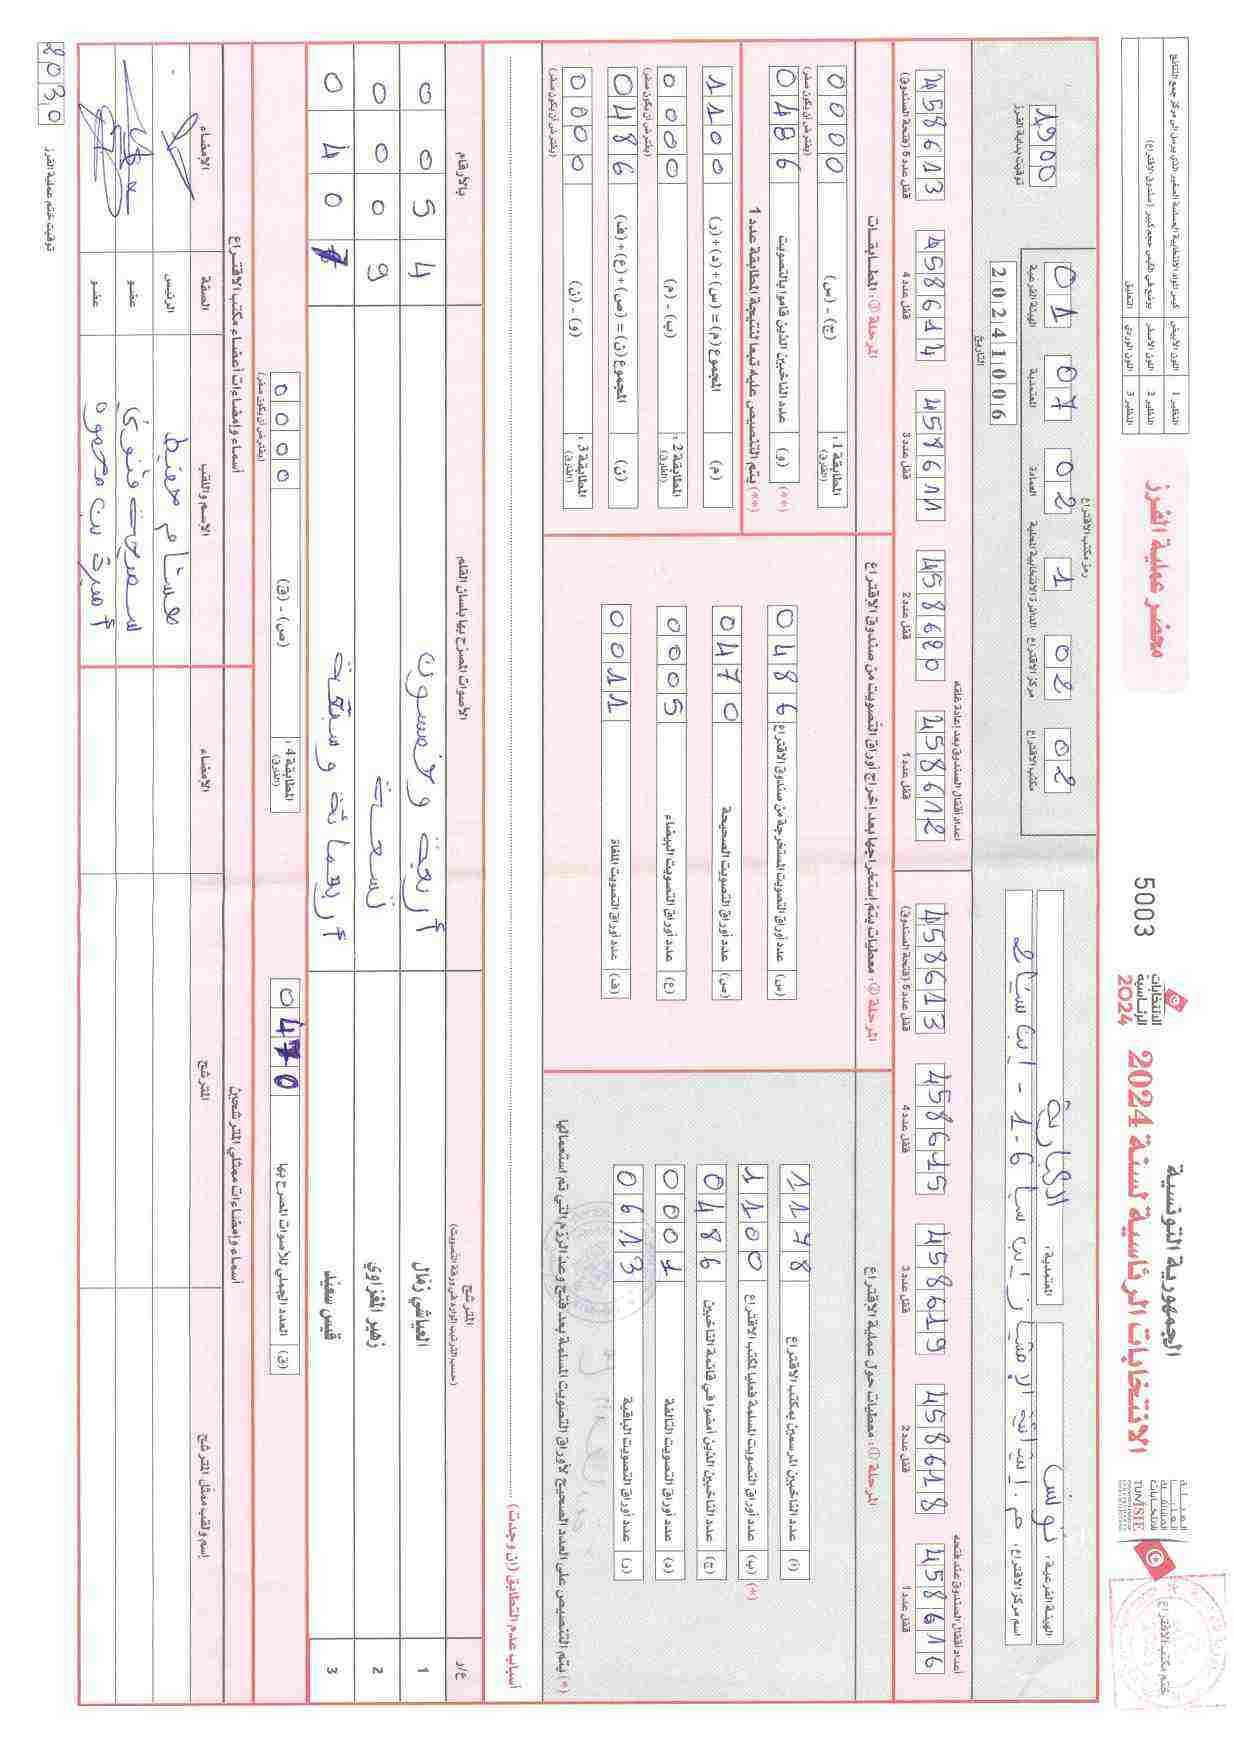 الجمهورية التونسية
الانتخابات الرئاسية لسنة 2024
الانتخابات الرئاسية 2024
TUNISIE
5003
محضر عملية الفرز
النظير 1 اللون الأبيض
النظير 2 اللون الأصفر
النظير 3 اللون الوردي التعليق
ختم مكتب الاقتراع
الهيئة الفرعية: تونس 1
المعتمدية:
اسم مركز الاقتراع:
رمز مكتب الاقتراع
الهيئة الفرعية 01
المعتمدية 07
العمادة 02
الدائرة الانتخابية المحلية 1
مركز الاقتراع 02
مكتب الاقتراع 02
التاريخ 20241006
توقيت بداية الفرز 1900
أعداد أقفال الصندوق عند فتحه
قفل عدد 1 458616
قفل عدد 2 458618
قفل عدد 3 458619
قفل عدد 4 458615
قفل عدد 5 (فتحة الصندوق) 458613
أعداد أقفال الصندوق بعد إعادة غلقه
قفل عدد 1 458612
قفل عدد 2 458620
قفل عدد 3 458611
قفل عدد 4 458614
قفل عدد 5 (فتحة الصندوق) 458613
المرحلة ①: معطيات حول عملية الاقتراع
(أ) عدد الناخبين المرسمين بمكتب الاقتراع 1178
(ب) عدد أوراق التصويت المسلمة فعليا لمكتب الاقتراع 1100 (*)
(ج) عدد الناخبين الذين أمضوا في قائمة الناخبين 0486
(د) عدد أوراق التصويت التالفة 0001
(ر) عدد أوراق التصويت الباقية 0613
(*) يتم التنصيص على العدد الصحيح لأوراق التصويت المسلمة بعد فتح وعد الرزم التي تم استعمالها
المرحلة ②: معطيات يتم إستخراجها بعد إخراج أوراق التصويت من صندوق الاقتراع
(س) عدد أوراق التصويت المستخرجة من صندوق الاقتراع 0486
(ص) عدد أوراق التصويت الصحيحة 0470
(ع) عدد أوراق التصويت البيضاء 0005
(ف) عدد أوراق التصويت الملغاة 0011
المرحلة ③: المطابقات
المطابقة 1: (الفارق) (ج) - (س) 0000 (يفترض أن يكون صفر)
(**) (و) عدد الناخبين الذين قاموا بالتصويت 0486
(**) يتم التنصيص عليه تبعا لنتيجة المطابقة عدد 1
(م) المجموع (م) = (س) + (د) + (ر) 1100
المطابقة 2: (الفارق) (ب) - (م) 0000 (يفترض أن يكون صفر)
(ن) المجموع (ن) = (ص) + (ع) + (ف) 0486
المطابقة 3: (الفارق) (و) - (ن) 0000 (يفترض أن يكون صفر)
أسباب عدم التطابق (إن وجدت)
ع/ر المترشح (حسب الترتيب الوارد في ورقة التصويت) الأصوات المصرح بها بلسان القلم بالأرقام
1 العياشي زمال أربعة وخمسون 0054
2 زهير المغزاوي تسعة 0009
3 قيس سعيد أربعمائة وسبعة 0407
(ق) العدد الجملي للأصوات المصرح بها 0470
المطابقة 4: (الفارق) (ص) - (ق) 0000 (يفترض أن يكون صفر)
أسماء وإمضاءات ممثلي المترشحين
إسم ولقب ممثل المترشح المترشح الإمضاء
أسماء وإمضاءات أعضاء مكتب الاقتراع
الإسم واللقب الصفة الإمضاء
الرئيس
عضو
أميرة بن محمود عضو
توقيت ختم عملية الفرز 2030